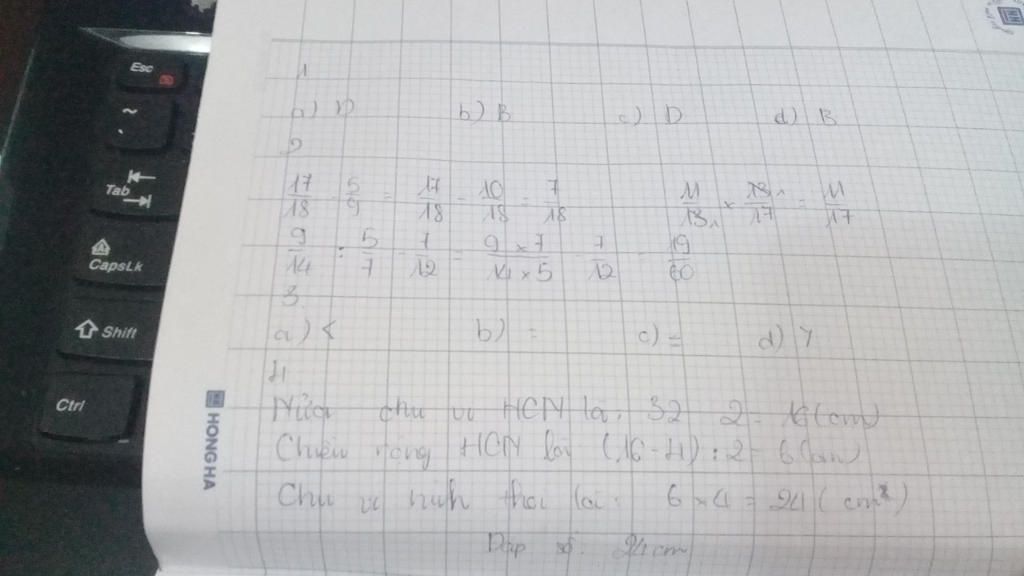 Esc
~
Tab
CapsLk
Shift
Ctrl
HONG HA
1
a) D b) B c) D d) B
2
17/18 - 5/9 = 17/18 - 10/18 = 7/18 11/18 × 18/17 = 11/17
9/14 : 5/7 - 7/12 = 9 × 7/14 × 5 - 7/12 = 19/60
3.
a) < b) = c) = d) >
4
Nửa chu vi HCN là: 32 : 2 = 16 (cm)
Chiều rộng HCN là (16 - 4) : 2 = 6 (cm)
Chu vi hình thoi là: 6 × 4 = 24 (cm)
Đáp số: 24 cm